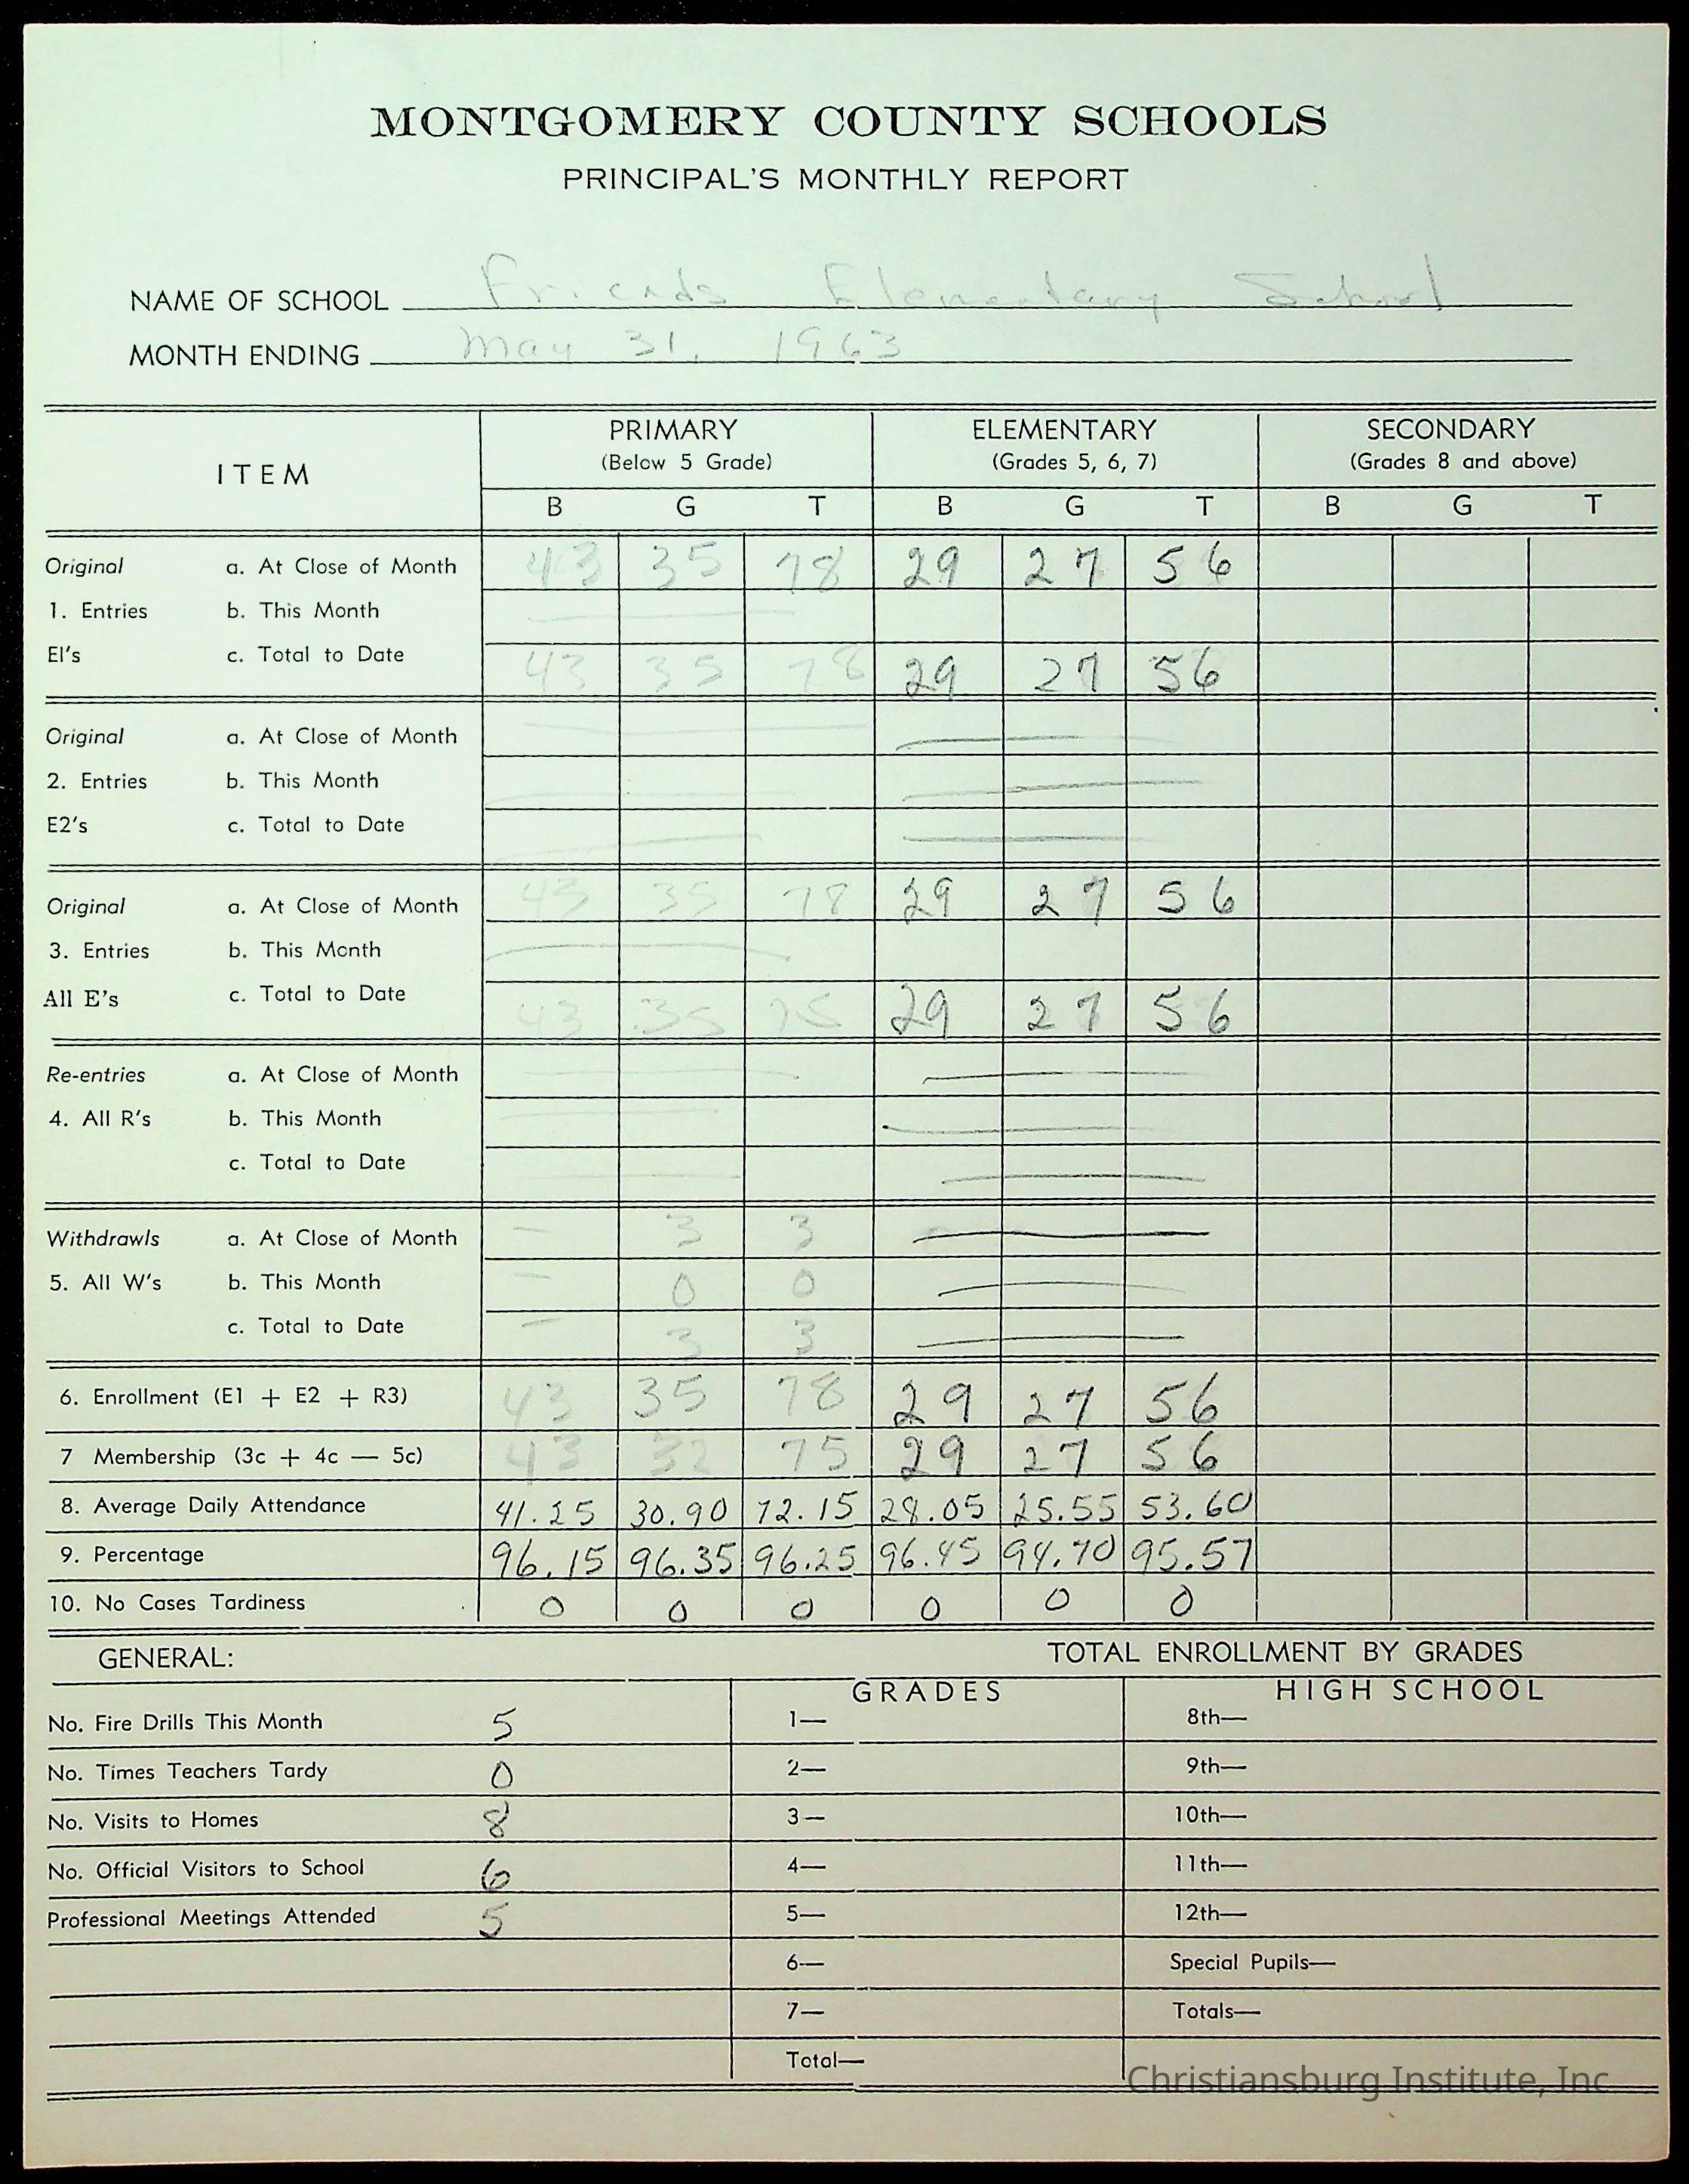 MONTGOMERY COUNTY SCHOOLS
PRINCIPAL'S MONTHLY REPORT
NAME OF SCHOOL Friends Elementary School
MONTH ENDING May 31, 1963
ITEM
PRIMARY
(Below 5 Grade)
ELEMENTARY
(Grades 5, 6, 7)
SECONDARY
(Grades 8 and above)
B G T B G T B G T
Original a. At Close of Month 43 35 78 29 27 56
1. Entries b. This Month
El's c. Total to Date 43 35 78 29 27 56
Original a. At Close of Month
2. Entries b. This Month
E2's c. Total to Date
Original a. At Close of Month 43 35 78 29 27 56
3. Entries b. This Month
All E's c. Total to Date 43 35 29 27 56
Re-entries a. At Close of Month
4. All R's b. This Month
c. Total to Date
Withdrawls a. At Close of Month — 3 3
5. All W's b. This Month — 0 0
c. Total to Date — 3 3
6. Enrollment (E1 + E2 + R3) 43 35 78 29 27 56
7 Membership (3c + 4c — 5c) 43 32 75 29 27 56
8. Average Daily Attendance 41.25 30.90 72.15 28.05 25.55 53.60
9. Percentage 96.15 96.35 96.25 96.45 94.70 95.57
10. No Cases Tardiness 0 0 0 0 0 0
GENERAL: TOTAL ENROLLMENT BY GRADES
GRADES HIGH SCHOOL
No. Fire Drills This Month 5 1— 8th—
No. Times Teachers Tardy 0 2— 9th—
No. Visits to Homes 8 3— 10th—
No. Official Visitors to School 6 4— 11th—
Professional Meetings Attended 5 5— 12th—
6— Special Pupils—
7— Totals—
Total—
Christiansburg Institute, Inc